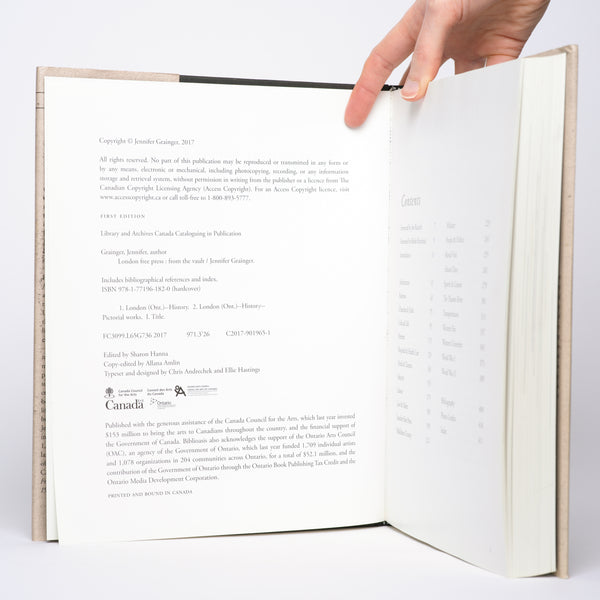 Copyright © Jennifer Grainger, 2017
All rights reserved. No part of this publication may be reproduced or transmitted in any form or
by any means, electronic or mechanical, including photocopying, recording, or any information
storage and retrieval system, without permission in writing from the publisher or a licence from The
Canadian Copyright Licensing Agency (Access Copyright). For an Access Copyright licence, visit
www.accesscopyright.ca or call toll-free to 1-800-893-5777.
FIRST EDITION
Library and Archives Canada Cataloguing in Publication
Grainger, Jennifer, author
London free press : from the vault / Jennifer Grainger.
Includes bibliographical references and index.
ISBN 978-1-77196-182-0 (hardcover)
1. London (Ont.)–History. 2. London (Ont.)–History–
Pictorial works. I. Title.
FC3099.L65G736 2017 971.3'26 C2017-901965-1
Edited by Sharon Hanna
Copy-edited by Allana Amlin
Typeset and designed by Chris Andrechek and Ellie Hastings
Canada Council for the Arts
Conseil des Arts du Canada
Canada
Ontario
Published with the generous assistance of the Canada Council for the Arts, which last year invested
$153 million to bring the arts to Canadians throughout the country, and the financial support of
the Government of Canada. Biblioasis also acknowledges the support of the Ontario Arts Council
(OAC), an agency of the Government of Ontario, which last year funded 1,709 individual artists
and 1,078 organizations in 204 communities across Ontario, for a total of $52.1 million, and the
contribution of the Government of Ontario through the Ontario Book Publishing Tax Credit and the
Ontario Media Development Corporation.
PRINTED AND BOUND IN CANADA
Contents